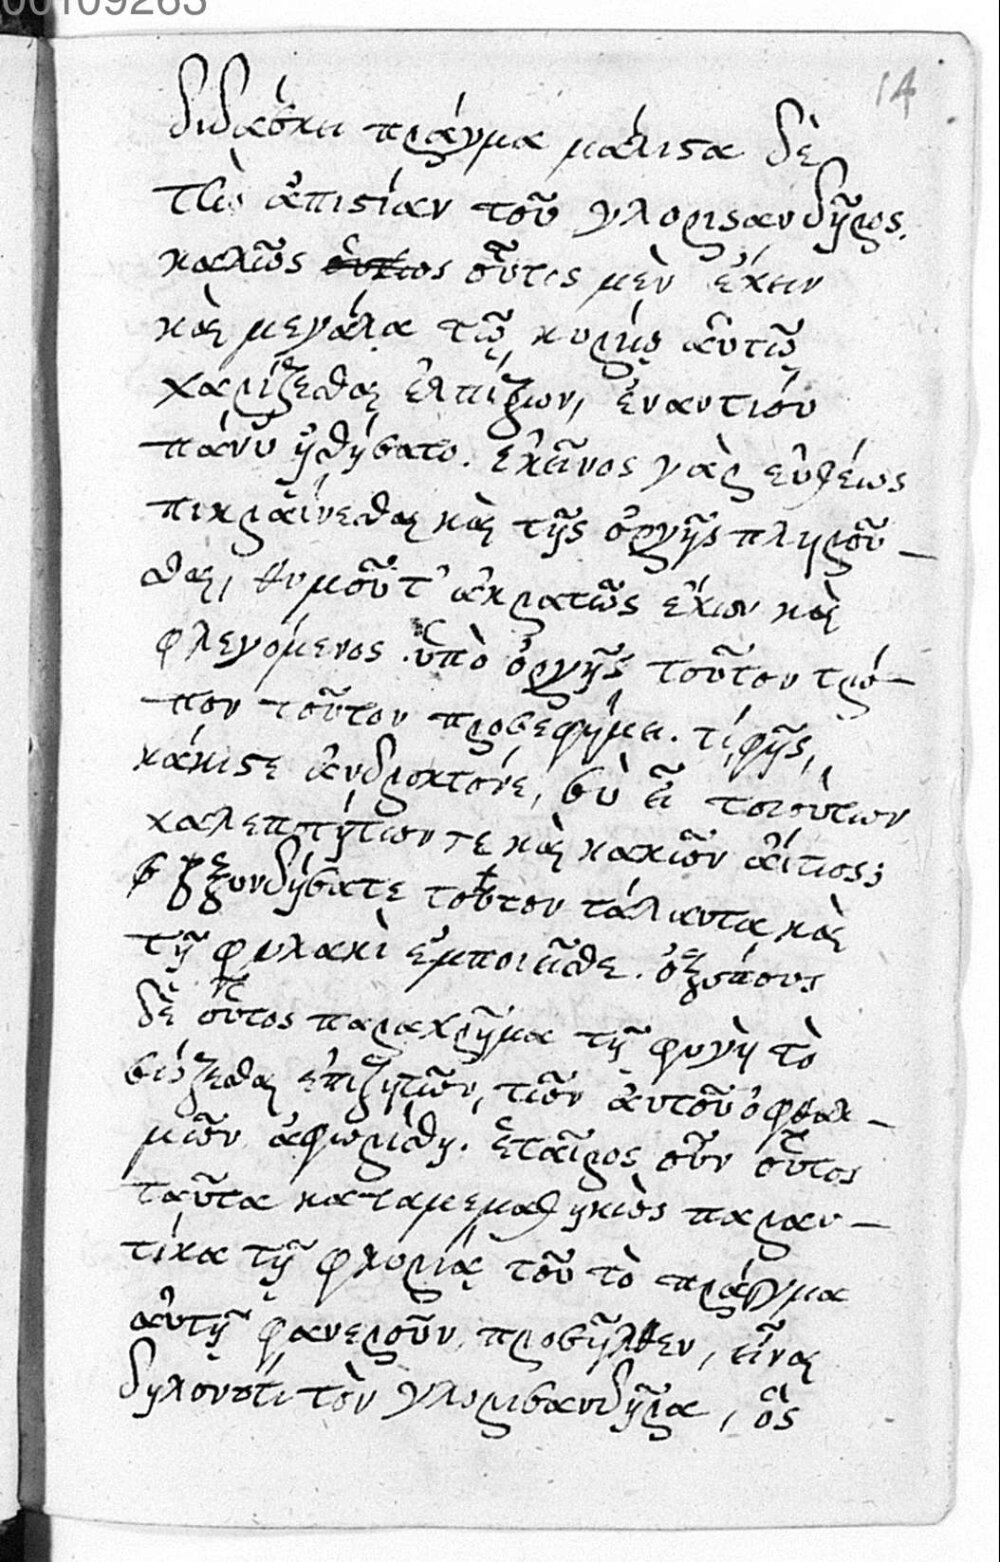 00109263
14
διδάσκει πράγμα μάλιστα δὲ
τὴν ἀπιστίαν τοῦ γλορισανδῆρος.
καλῶς οὕτως οὗτος μὲν ἔχειν
καὶ μεγάλα τῷ κυρίῳ αὐτῷ
χαρίζεσθαι ἐλπίζων, ἐναντίου
πάνυ ᾐσθήσατο. ἐκεῖνος γὰρ εὐθέως
πικραίνεσθαι καὶ τῆς ὀργῆς πληροῦ-
σθαι, θυμοῦ τ' ἀκρατῶς ἔχων καὶ
φλεγόμενος ὑπὸ ὀργῆς τοῦτον τρό-
πον τοῦτον προσεφήμει. τί φῂς,
κάκιστε ἀνδροκτόνε, σὺ εἶ τοιούτων
χαλεποτήτων τε καὶ κακῶν αἴτιος;
ξυνδήσατε τοῦτον τάλαντα καὶ
τῇ φυλακὶ ἐμποιεῖσθε. ὀξύπους
δὲ οὗτος παραχρῆμα τῇ φυγῇ τὸ
σώζεσθαι ἐπιζητῶν, τῶν αὐτοῦ ὀφθαλ-
μῶν ἀφωρίσθη. ἑταῖρος οὖν οὗτος
ταῦτα καταμεμαθηκὼς παραυ-
τίκα τῇ φλορίᾳ τοῦ τὸ πρᾶγμα
αὐτῇ φανεροῦν προσῆλθεν, εἶναι
δηλονότι τὸν γλορισανδῆρα, ὃς